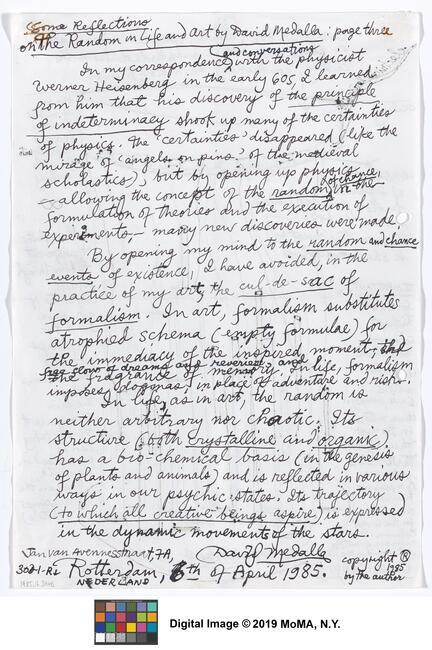 Some Reflections
on the Random in Life and Art by David Medalla: page three
and conversations
In my correspondence with the physicist
Werner Heisenberg in the early 60s, I learned
from him that his discovery of the principle
of indeterminacy shook up many of the certainties
of physics. The 'certainties' disappeared (like the
mirage of 'angels on pins' of the medieval
scholastics), but by opening up physics
— allowing the concept of the random, of chance, in the
formulation of theories and the execution of
experiments, — many new discoveries were made.
By opening my mind to the random and chance
events of existence, I have avoided, in the
practice of my art, the cul-de-sac of
formalism. In art, formalism substitutes
atrophied schema (empty formulae) for
the immediacy of the inspired moment, the
free flow of dreams and reveries, and
the fragrance of memory. In life, formalism
imposes dogmas in place of adventure and risk.
In life, as in art, the random is
neither arbitrary nor chaotic. Its
structure (both crystalline and organic)
has a bio-chemical basis (in the genesis
of plants and animals) and is reflected in various
ways in our psychic states. Its trajectory
(to which all creative beings aspire) is expressed
in the dynamic movements of the stars.
Jan van Avennesstraat, 7A,
3021-RL Rotterdam, 6th of April 1985.
NEDERLAND
David Medalla
copyright ®
1985
by the author
Digital Image © 2019 MoMA, N.Y.